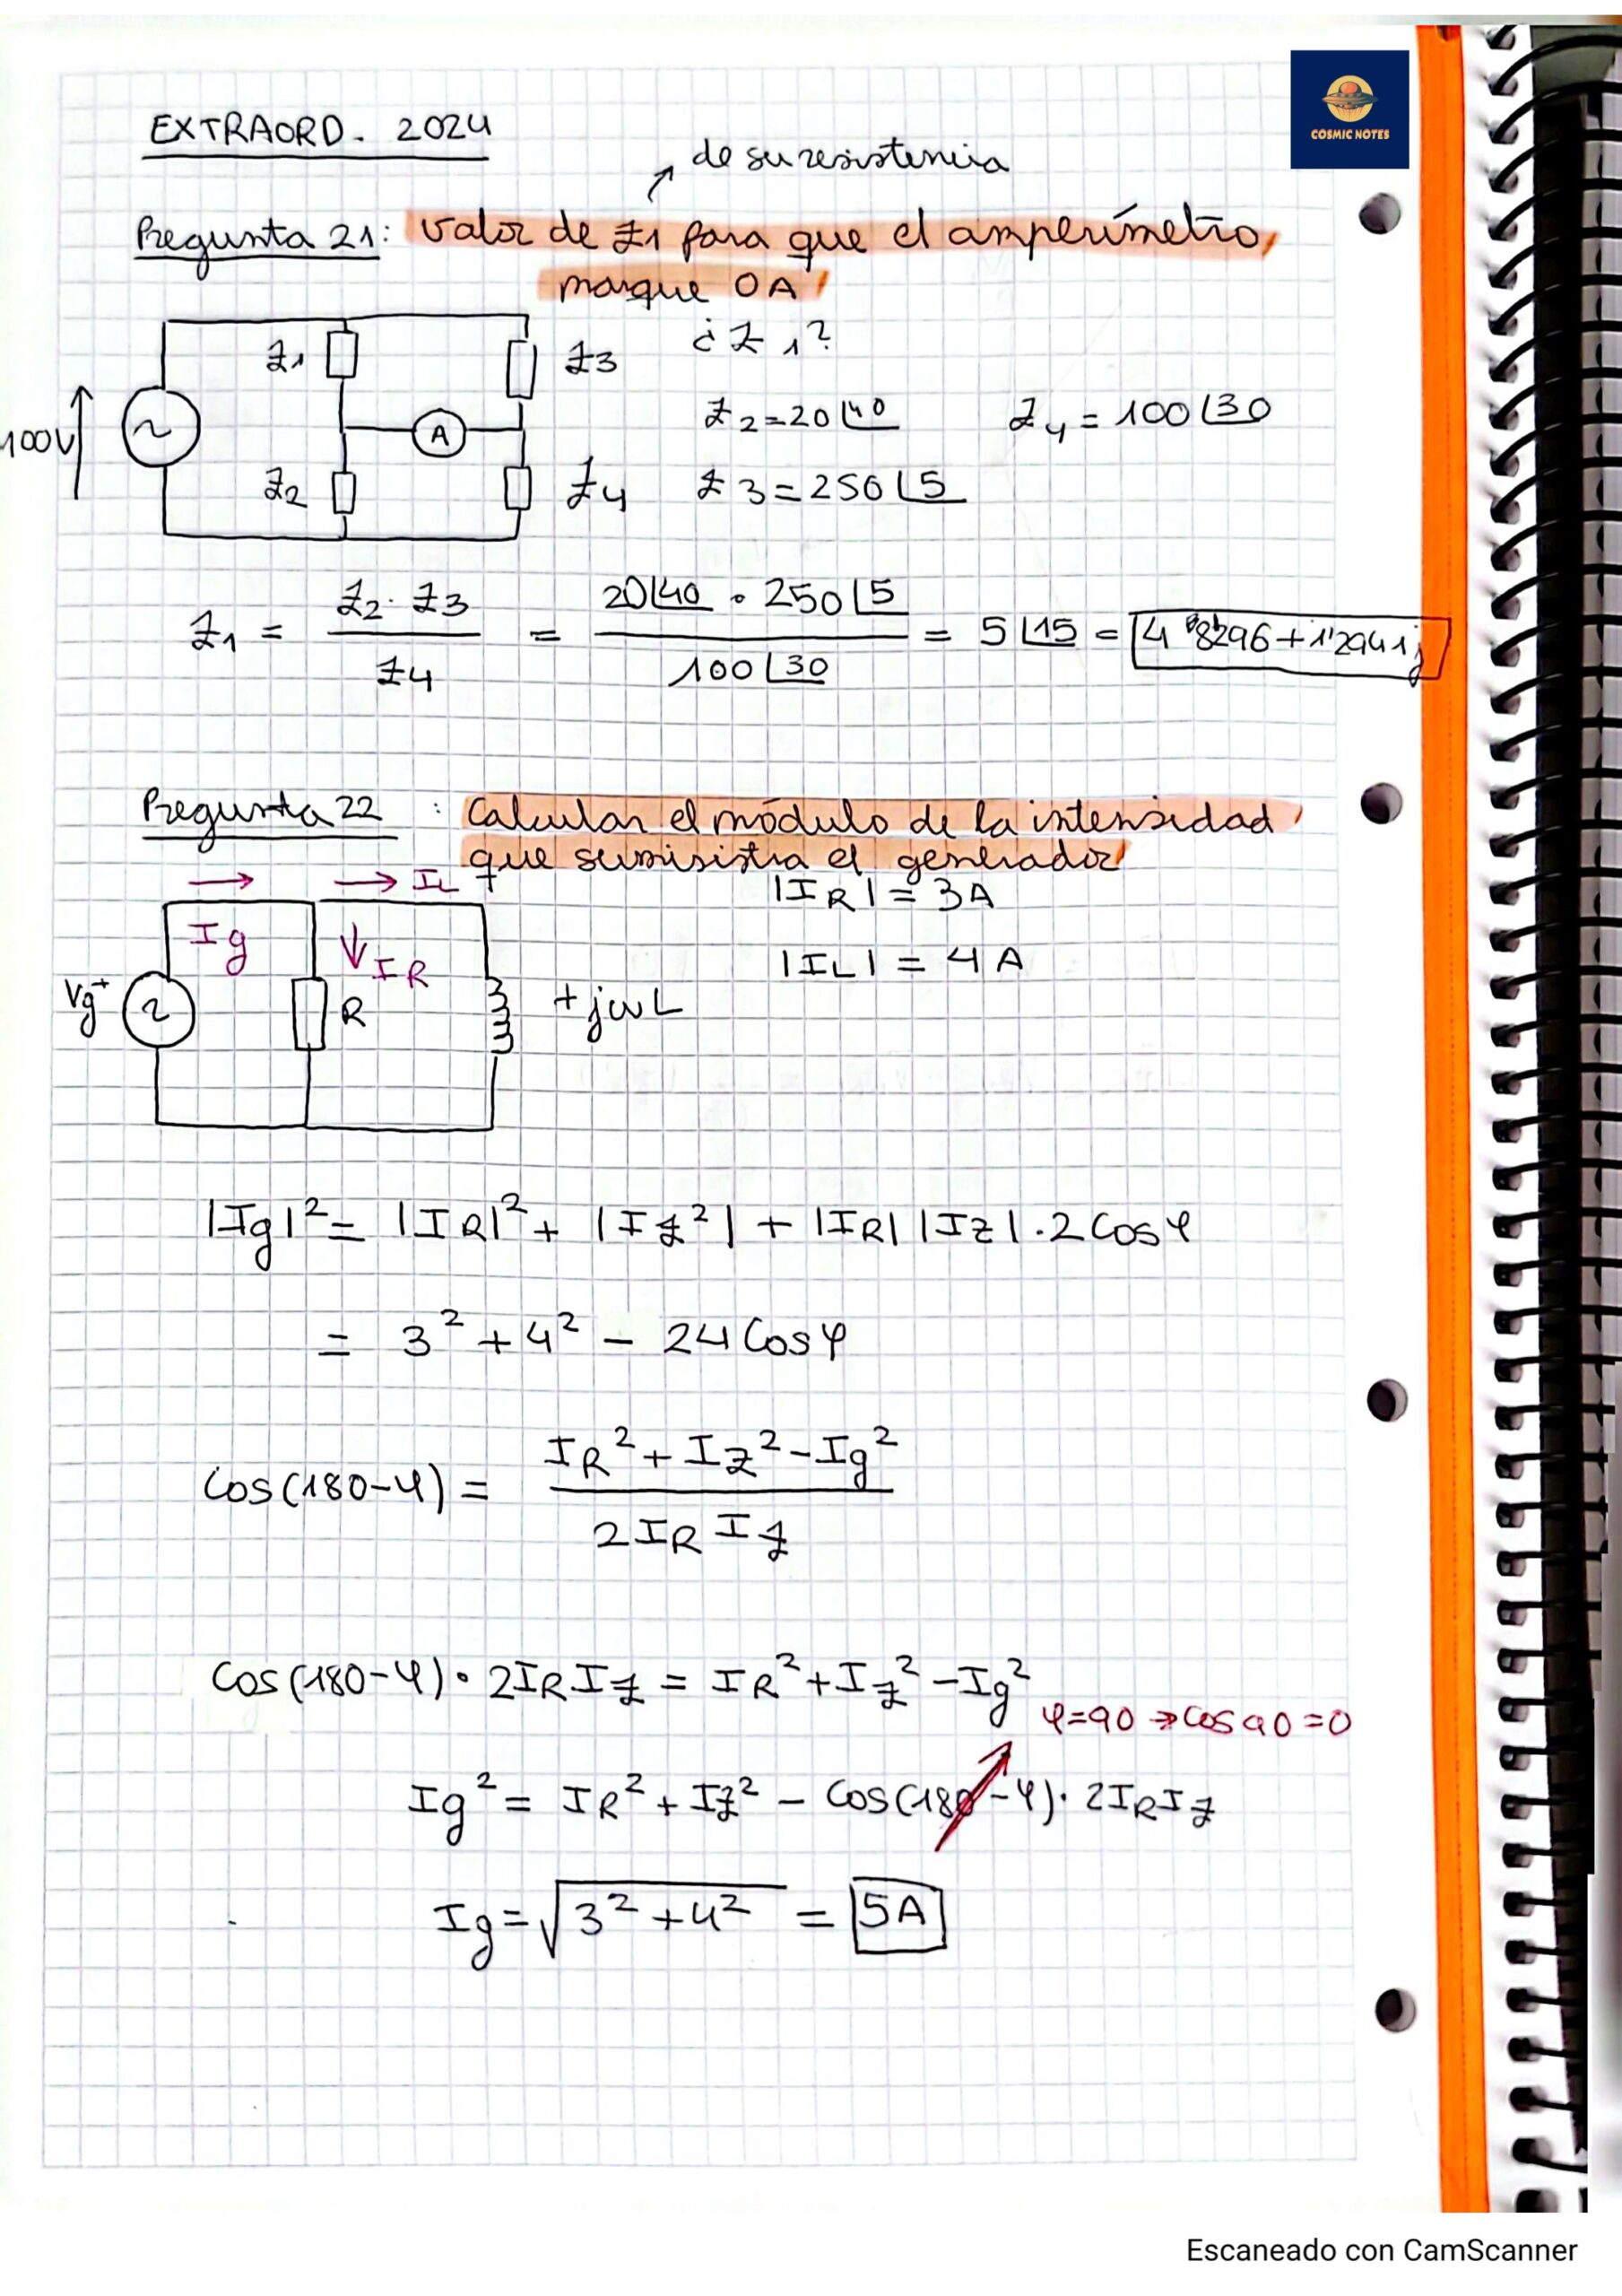 COSMIC NOTES
EXTRAORD. 2024
de su resistencia
Pregunta 21: valor de Z1 para que el amperímetro
marque 0A
¿Z1?
Z1
Z3
100V
A
Z2 = 20∟40
Z4 = 100∟30
Z2
Z4
Z3 = 250∟5
Z1 = Z2·Z3 / Z4 = 20∟40 · 250∟5 / 100∟30 = 5∟15 = 4'8296+1'2941j
Pregunta 22 : Calcular el módulo de la intensidad
que suministra el generador
IL
|IR| = 3A
Ig
IR
|IL| = 4A
Vg+
R
+jωL
|Ig|² = |IR|² + |IZ²| + |IR| |IZ| · 2 Cos φ
= 3² + 4² − 24 Cos φ
Cos(180−φ) = IR² + IZ² − Ig² / 2 IR IZ
Cos(180−φ) · 2IR IZ = IR² + IZ² − Ig²
φ=90 → Cos 90 = 0
Ig² = IR² + IZ² − Cos(180−φ) · 2IR IZ
Ig = √3² + 4² = 5A
Escaneado con CamScanner